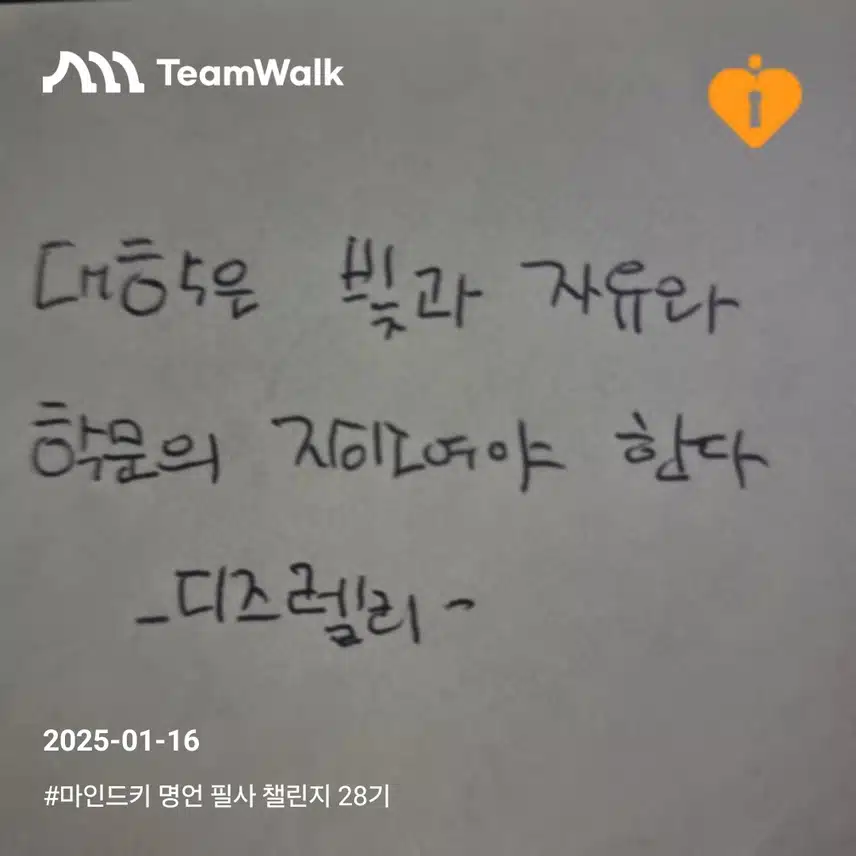 TeamWalk
대학은 빛과 자유와
학문의 자이로여야 한다
-디즈렐리-
2025-01-16
#마인드키 명언 필사 챌린지 28기